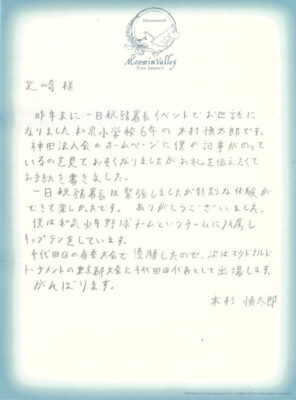 Moominvalley
芝崎 様
昨年末に一日税務署長イベントでお世話に
なりました和泉小学校6年の木村慎太郎です。
神田法人会のホームページに僕の記事がのって
いるのを見ておそくなりましたがお礼を伝えたくて
お手紙を書きました。
一日税務署長は緊張しましたが特別な体験が
できて楽しかったです。ありがとうございました。
僕は和泉少年野球チームというチームに所属し
キャプテンをしています。
千代田区の春季大会で優勝したので、次はマクドナルド
トーナメントの東京都大会に千代田区代表として出場します。
がんばります。
木村 慎太郎